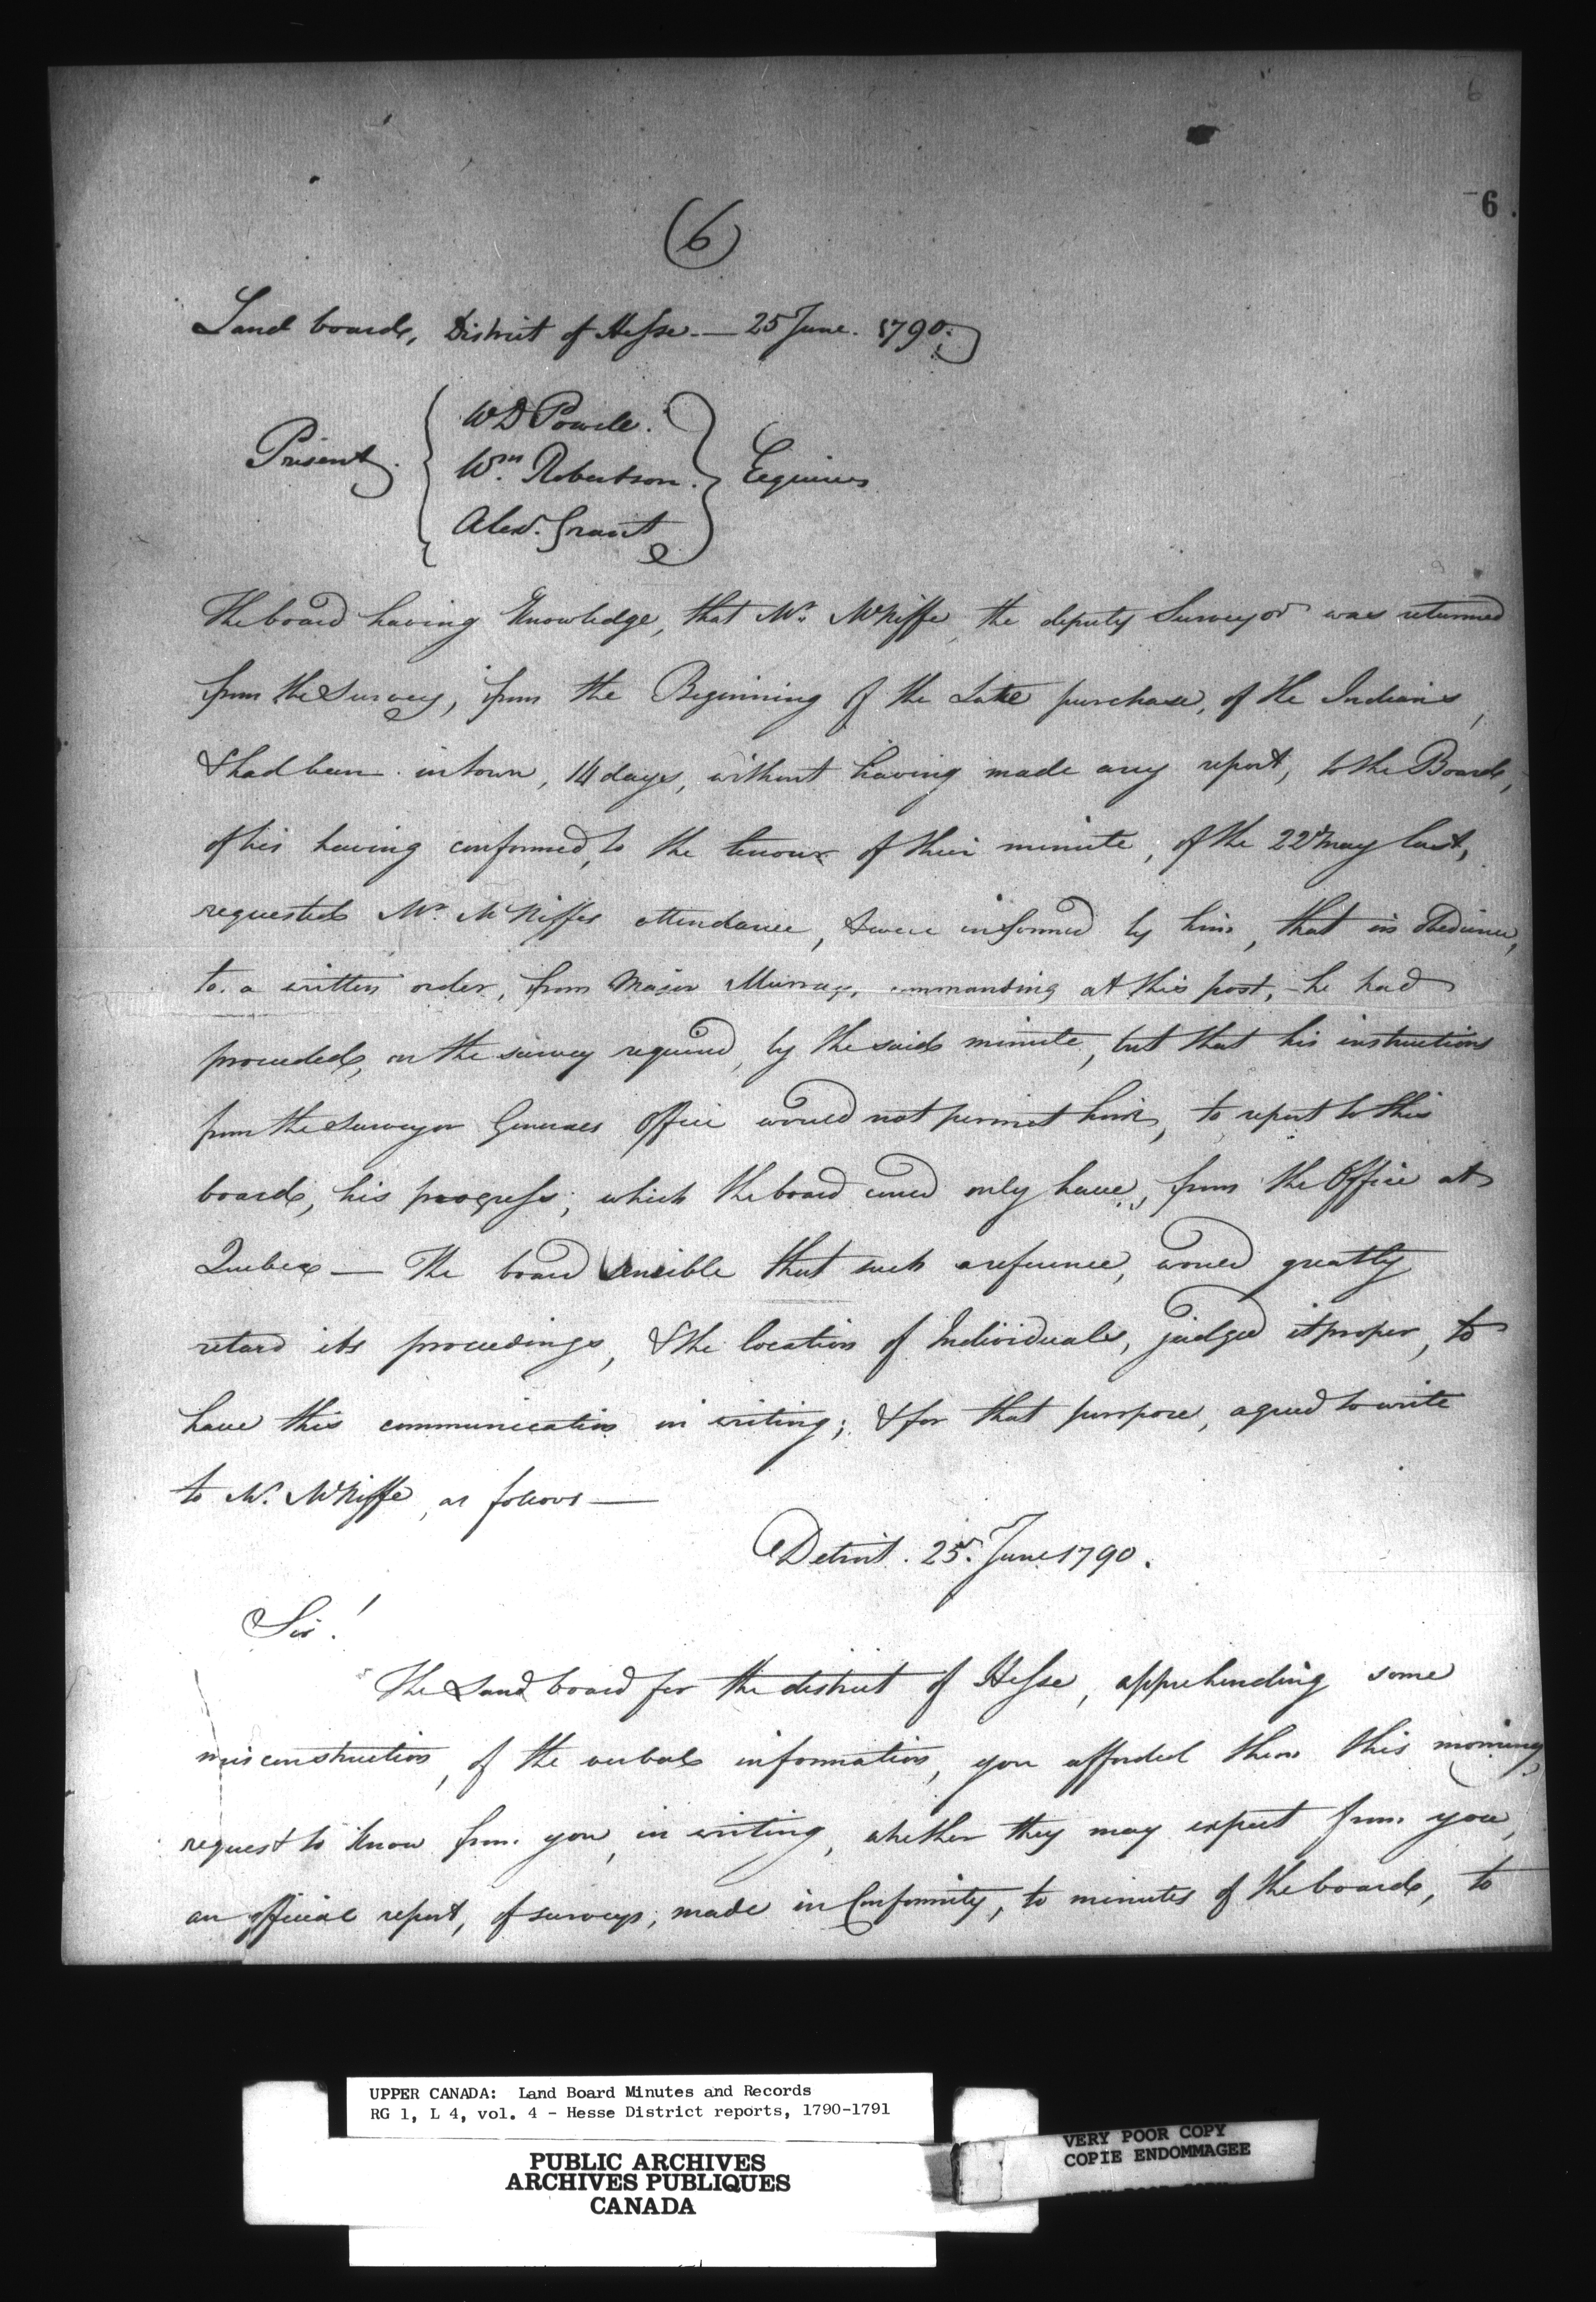 6
6.
(6)
Land board, District of Hesse — 25 June. 1790.
Present.
W D Powell.
Wm. Robertson.
Alexr. Grant
Esquires
The board having knowledge, that Mr. McNiffe, the deputy Surveyor was returned
from the Survey, from the Beginning of the Late purchase, of the Indians,
& had been in town, 14 days, without having made any report, to the Board,
of his having conformed, to the tenour of their minute, of the 22d may last,
requested Mr. McNiffes attendance, & were informed by him, that in Obedience,
to a written order, from Major Murray, commanding at this post, he had
proceeded, on the survey required, by the said minute, but that his instructions
from the Surveyor Generals Office would not permit him, to report to this
board, his progress; which the board coued only have, from the Office at
Quebec — The board sensible that such a reference, woued greatly
retard its proceedings, & the location of Individuals, judged it proper, to
have this communication in writing; & for that purpose, agreed to write
to Mr. McNiffe, as follows —
Detroit. 25. June 1790.
Sir!
The Land board for the district of Hesse, apprehending some
misconstruction, of the verbal information, you afforded them this morning,
request to know from you, in writing, whether they may expect from you,
an official report, of surveys, made in Conformity, to minutes of the board, to
UPPER CANADA: Land Board Minutes and Records
RG 1, L 4, vol. 4 - Hesse District reports, 1790-1791
PUBLIC ARCHIVES
ARCHIVES PUBLIQUES
CANADA
VERY POOR COPY
COPIE ENDOMMAGEE